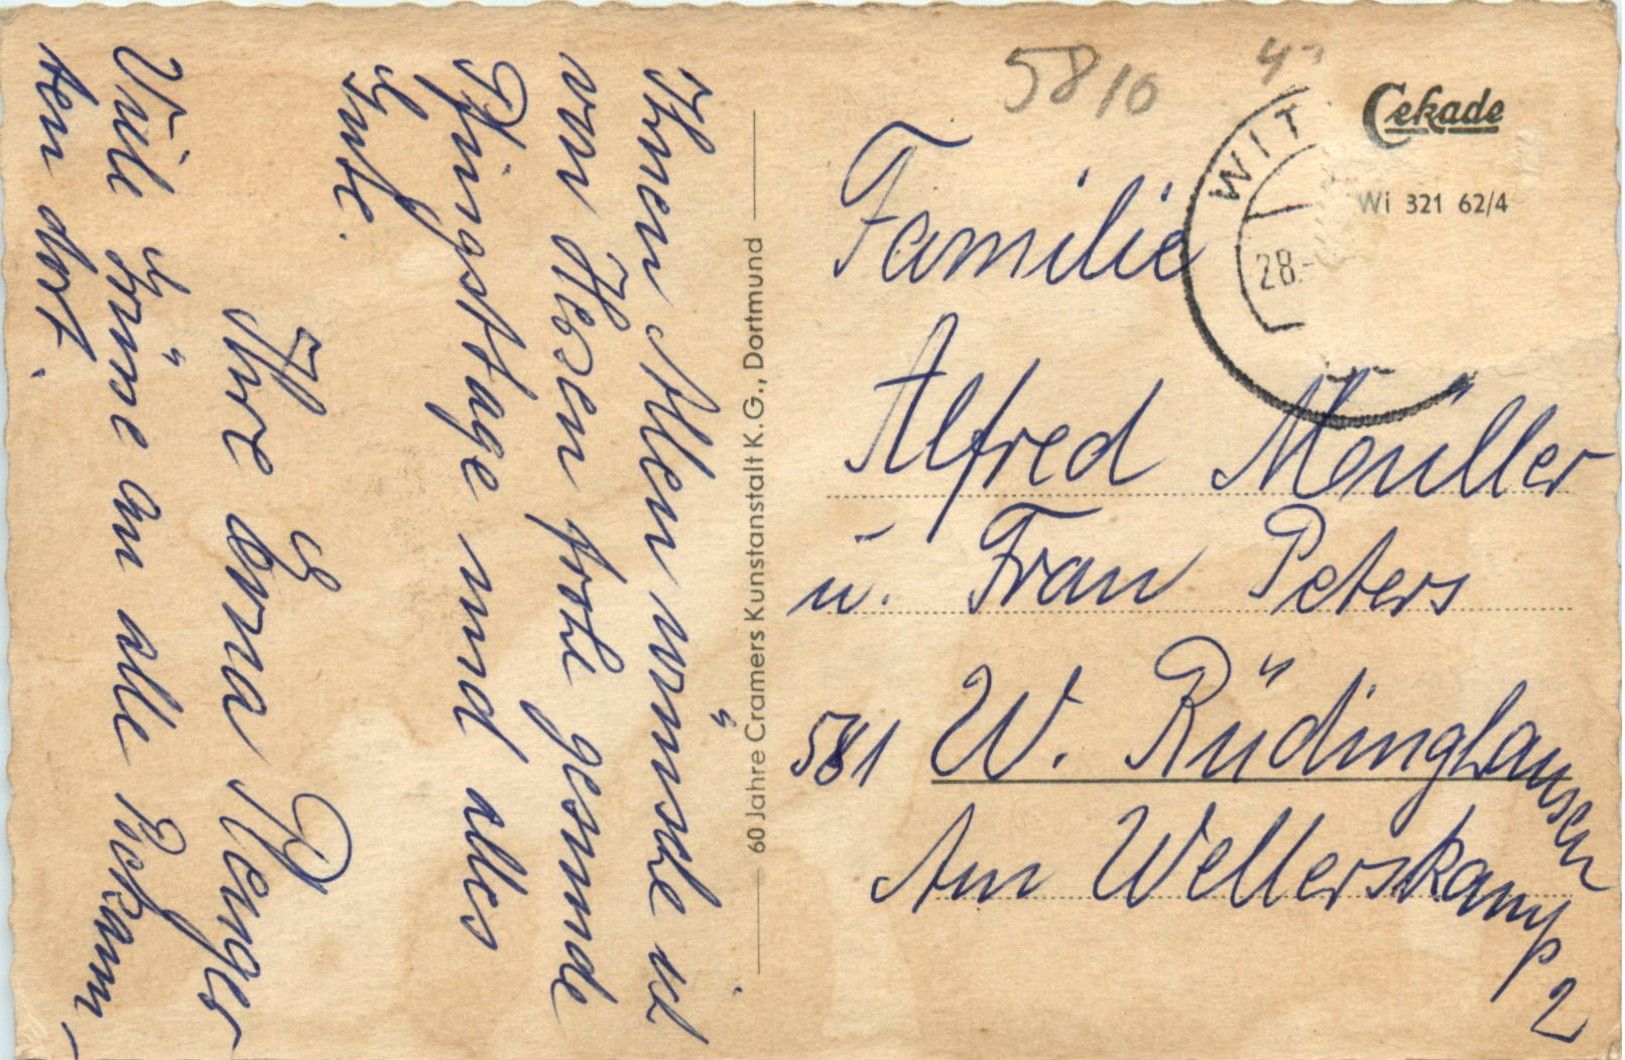 Ihnen Allen wünsche ich
von Herzen frohe gesunde
Pfingsttage und alles
Gute.
Ihre Erna Renger
Viele Grüße an alle Bekann-
ten dort.
60 Jahre Cramers Kunstanstalt K.G., Dortmund
5810
Cekade
Wi 321 62/4
WIT
28.-
Familie
Alfred Müller
u. Frau Peters
581 W. Rüdinghausen
Am Wellerskamp 2